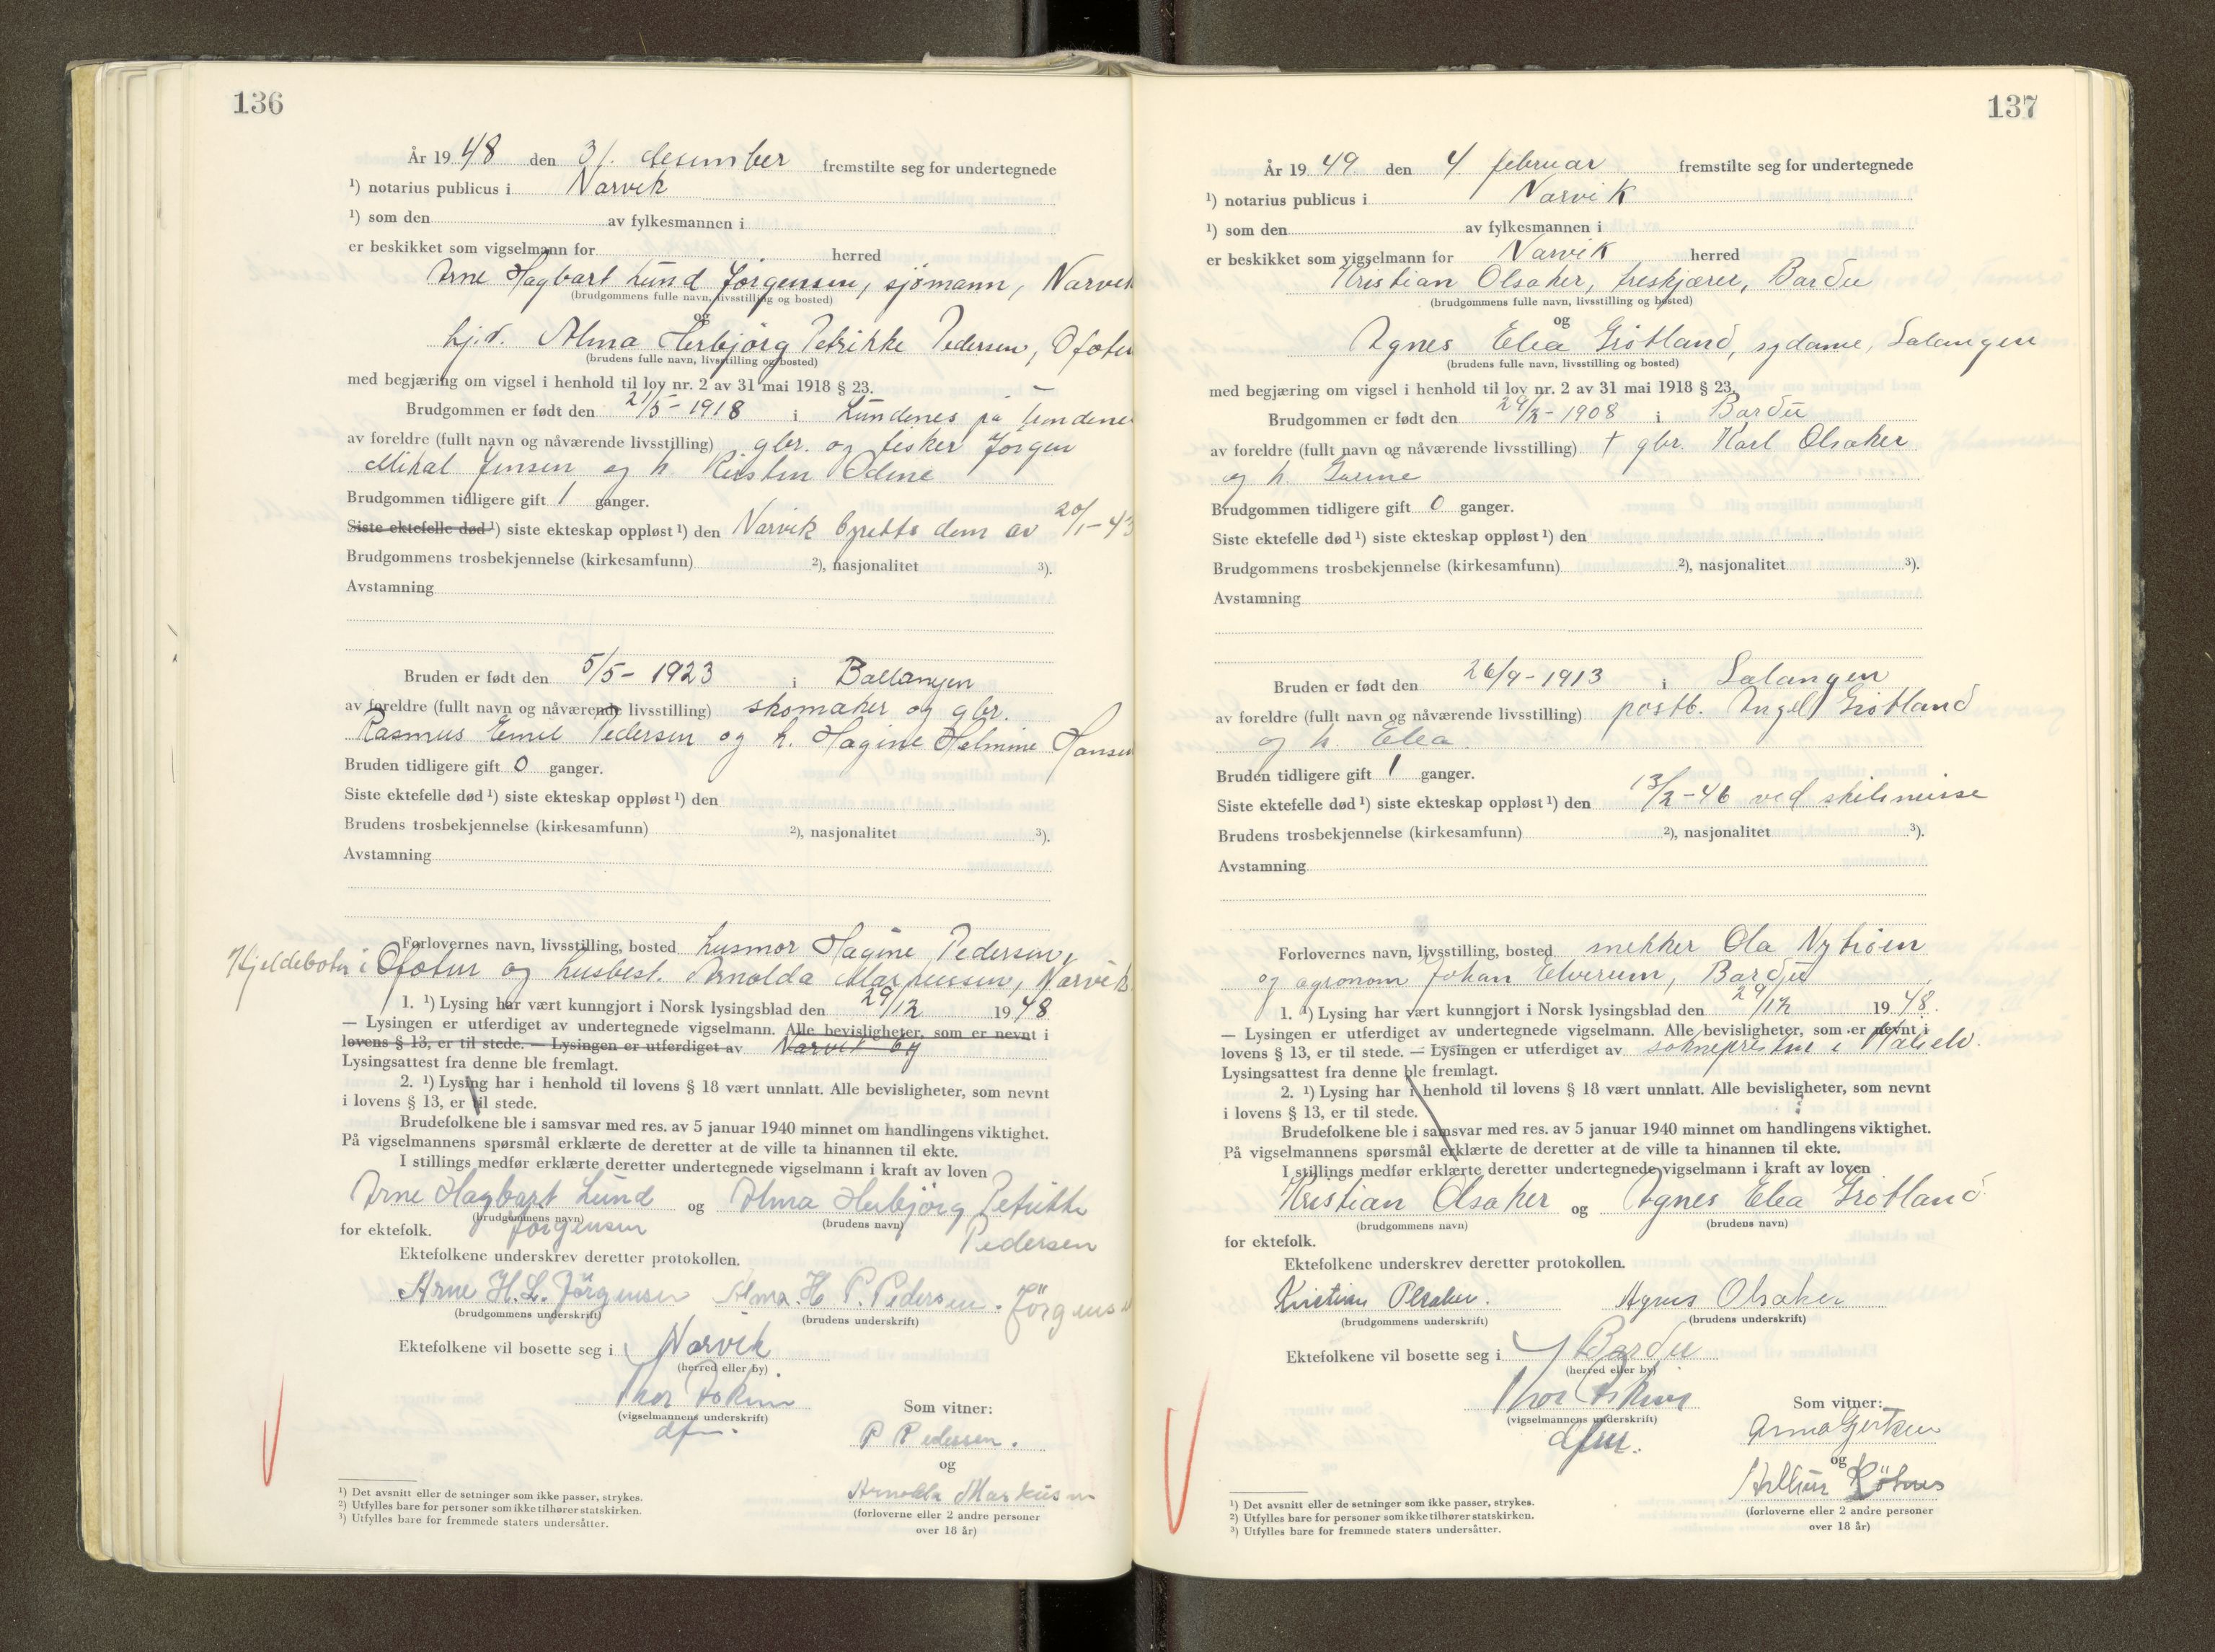 136
År 1948 den 31. desember fremstilte seg for undertegnede
¹) notarius publicus i Narvik
¹) som den av fylkesmannen i
er beskikket som vigselmann for herred
Arne Hagbart Lund Jørgensen, sjømann, Narvik
(brudgommens fulle navn, livsstilling og bosted)
og
hj.d. Alma Herbjørg Petrikke Pedersen, Ofoten
(brudens fulle navn, livsstilling og bosted)
med begjæring om vigsel i henhold til lov nr. 2 av 31 mai 1918 § 23.
Brudgommen er født den 21/5-1918 i Lundenes på
av foreldre (fullt navn og nåværende livsstilling) gbr. og fisker Jørgen
Mikal Jensen og h. Kirstin Odine
Brudgommen tidligere gift 1 ganger.
Siste ektefelle død ¹) siste ekteskap oppløst ¹) den Narvik byretts dom av 20/1-43
Brudgommens trosbekjennelse (kirkesamfunn) ²), nasjonalitet ³).
Avstamning
Bruden er født den 5/5-1923 i Ballangen
av foreldre (fullt navn og nåværende livsstilling) skomaker og gbr.
Rasmus Emil Pedersen og h. Hagine Helmine Hansen
Bruden tidligere gift 0 ganger.
Siste ektefelle død ¹) siste ekteskap oppløst ¹) den
Brudens trosbekjennelse (kirkesamfunn) ²), nasjonalitet ³).
Avstamning
Forlovernes navn, livsstilling, bosted husmor Hagine Pedersen,
Kjeldebotn i Ofoten og husbest. Arnolda Markussen, Narvik
1. ¹) Lysing har vært kunngjort i Norsk lysingsblad den 29/12 1948
— Lysingen er utferdiget av undertegnede vigselmann. Alle bevisligheter, som er nevnt i
lovens § 13, er til stede. — Lysingen er utferdiget av Narvik by
Lysingsattest fra denne ble fremlagt.
2. ¹) Lysing har i henhold til lovens § 18 vært unnlatt. Alle bevisligheter, som nevnt
i lovens § 13, er til stede.
Brudefolkene ble i samsvar med res. av 5 januar 1940 minnet om handlingens viktighet.
På vigselmannens spørsmål erklærte de deretter at de ville ta hinannen til ekte.
I stillings medfør erklærte deretter undertegnede vigselmann i kraft av loven
Arne Hagbart Lund og Alma Herbjørg Petrikke
(brudgommens navn) (brudens navn)
for ektefolk. Jørgensen Pedersen
Ektefolkene underskrev deretter protokollen.
Arne H. L. Jörgensen Alma. H P. Pedersen. Jörgensen
(brudgommens underskrift) (brudens underskrift)
Ektefolkene vil bosette seg i Narvik
(herred eller by)
Thor
(vigselmannens underskrift)
dfm.
Som vitner:
P Pedersen.
og
Arnolda Markussen
(forloverne eller 2 andre personer
over 18 år)
¹) Det avsnitt eller de setninger som ikke passer, strykes.
²) Utfylles bare for personer som ikke tilhører statskirken.
³) Utfylles bare for fremmede staters undersåtter.
137
År 1949 den 4 februar fremstilte seg for undertegnede
¹) notarius publicus i Narvik
¹) som den av fylkesmannen i
er beskikket som vigselmann for Narvik herred
Kristian Olsaker, treskjærer, Bardu
(brudgommens fulle navn, livsstilling og bosted)
og
Agnes Elea Grötland, sydame, Salangen
(brudens fulle navn, livsstilling og bosted)
med begjæring om vigsel i henhold til lov nr. 2 av 31 mai 1918 § 23.
Brudgommen er født den 29/2-1908 i Bardu
av foreldre (fullt navn og nåværende livsstilling) † gbr. Karl Olsaker
og h.
Brudgommen tidligere gift 0 ganger.
Siste ektefelle død ¹) siste ekteskap oppløst ¹) den
Brudgommens trosbekjennelse (kirkesamfunn) ²), nasjonalitet ³).
Avstamning
Bruden er født den 26/9-1913 i Salangen
av foreldre (fullt navn og nåværende livsstilling) postb. Ingel Grötland
og h. Elea
Bruden tidligere gift 1 ganger.
Siste ektefelle død ¹) siste ekteskap oppløst ¹) den 13/2-46 ved skilsmisse
Brudens trosbekjennelse (kirkesamfunn) ²), nasjonalitet ³).
Avstamning
Forlovernes navn, livsstilling, bosted snekker Ola Nytrøen
og agronom Johan Elverum, Bardu
1. ¹) Lysing har vært kunngjort i Norsk lysingsblad den 29/12 1948.
— Lysingen er utferdiget av undertegnede vigselmann. Alle bevisligheter, som er nevnt i
lovens § 13, er til stede. — Lysingen er utferdiget av soknepresten i Målselv.
Lysingsattest fra denne ble fremlagt.
2. ¹) Lysing har i henhold til lovens § 18 vært unnlatt. Alle bevisligheter, som nevnt
i lovens § 13, er til stede.
Brudefolkene ble i samsvar med res. av 5 januar 1940 minnet om handlingens viktighet.
På vigselmannens spørsmål erklærte de deretter at de ville ta hinannen til ekte.
I stillings medfør erklærte deretter undertegnede vigselmann i kraft av loven
Kristian Olsaker og Agnes Elea Grötland
(brudgommens navn) (brudens navn)
for ektefolk.
Ektefolkene underskrev deretter protokollen.
Kristian Olsaker. Agnes Olsaker
(brudgommens underskrift) (brudens underskrift)
Ektefolkene vil bosette seg i Bardu
(herred eller by)
Thor
(vigselmannens underskrift)
dfm.
Som vitner:
Anna Gjertsen
og
(forloverne eller 2 andre personer
over 18 år)
¹) Det avsnitt eller de setninger som ikke passer, strykes.
²) Utfylles bare for personer som ikke tilhører statskirken.
³) Utfylles bare for fremmede staters undersåtter.